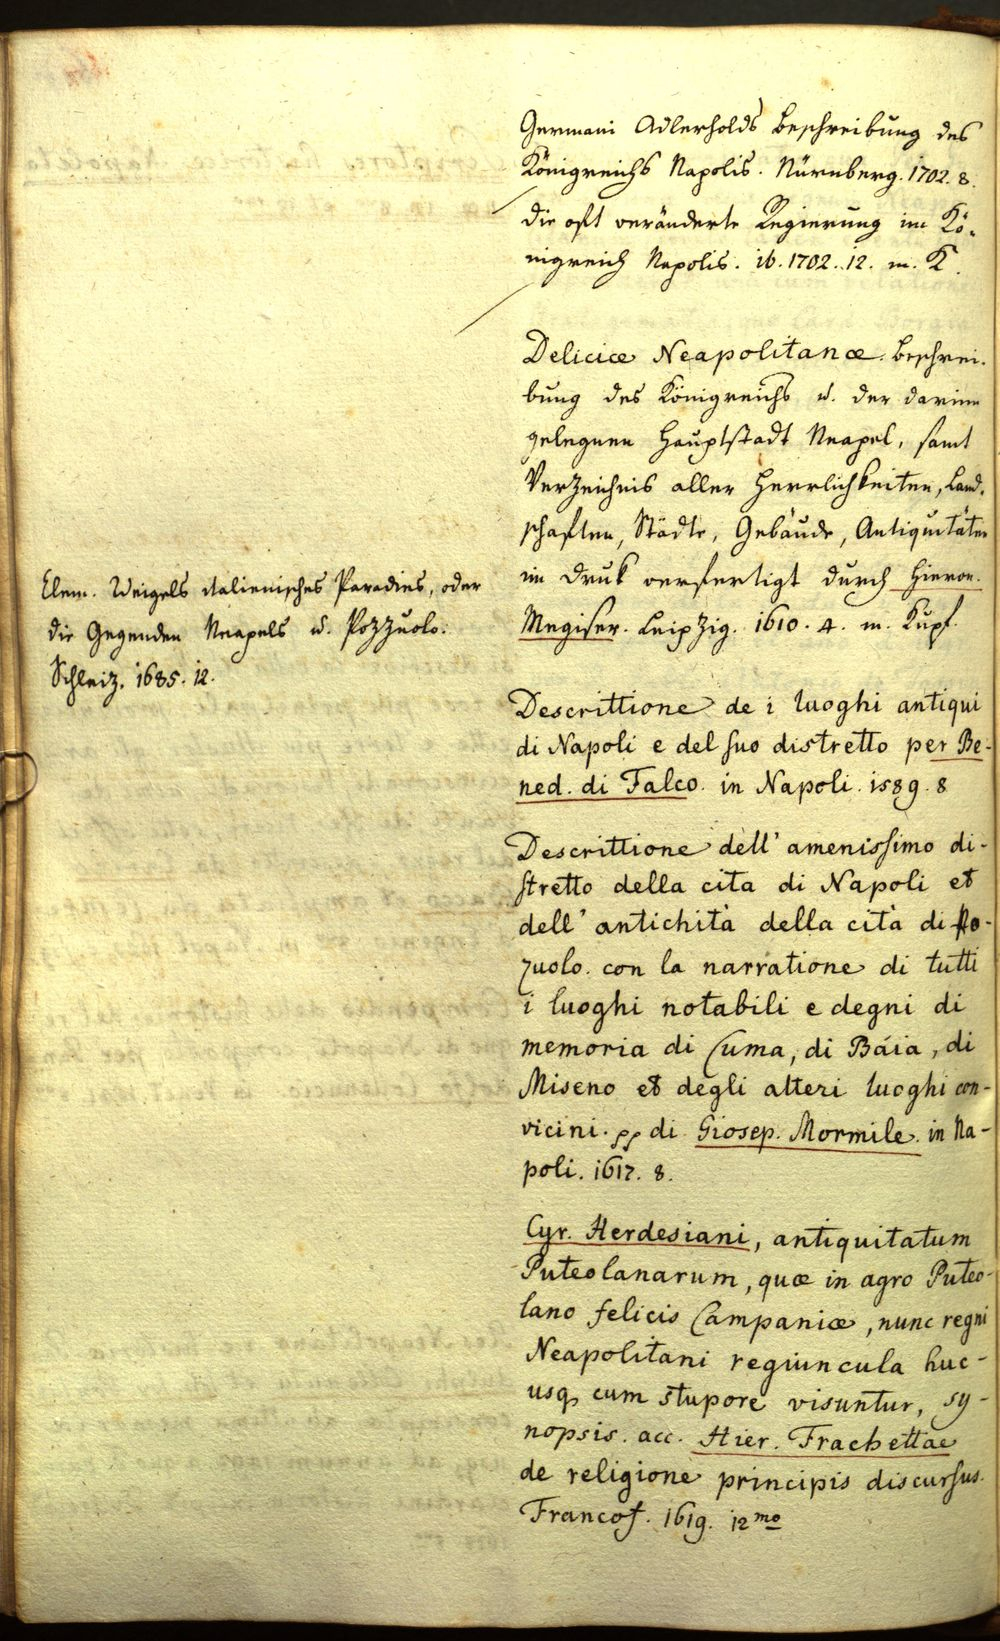 Germani Adlerholds Beschreibung des
Königreichs Napolis. Nürnberg. 1702. 8.
die oft veränderte Regierung im Kö-
nigreich Napolis. ib. 1702. 12. m. K.
Deliciæ Neapolitanæ. Beschrei-
bung des Königreichs u. der darinn
gelegnen Hauptstadt Neapel, samt
Verzeichnis aller Herrlichkeiten, Land-
schaften, Städte, Gebäude, Antiquitäten
im Druk verfertigt durch Hieron.
Megiser. Leipzig. 1610. 4. m. Kupf.
Clem. Weigels italienisches Paradies, oder
die Gegenden Neapels u. Pozzuolo.
Schleiz. 1685. 12.
Descrittione de i luoghi antiqui
di Napoli e del suo distretto per Be-
ned. di Falco. in Napoli. 1589. 8
Descrittione dell' amenissimo di-
stretto della cita di Napoli et
dell' antichità della cità di Po-
zuolo. con la narratione di tutti
i luoghi notabili e degni di
memoria di Cuma, di Báia, di
Miseno et degli alteri luoghi con-
vicini. pp di Giosep. Mormile. in Na-
poli. 1617. 8.
Cyr. Herdesiani, antiquitatum
Puteolanarum, quæ in agro Puteo-
lano felicis Campaniæ, nunc regni
Neapolitani regiuncula huc-
usq, cum stupore visuntur, sy-
nopsis. acc. Hier. Frachettae
de religione principis discursus.
Francof. 1619. 12mo